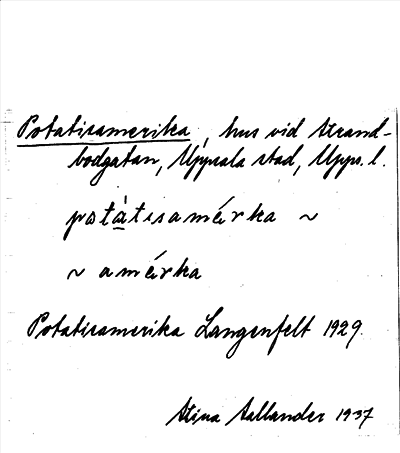 Potatisamerika, hus vid Strand-
bodgatan, Uppsala stad, Upps. l.
potàtisamérka ~
~ amérka
Potatisamerika Langenfelt 1929.
Stina Sallander 1937